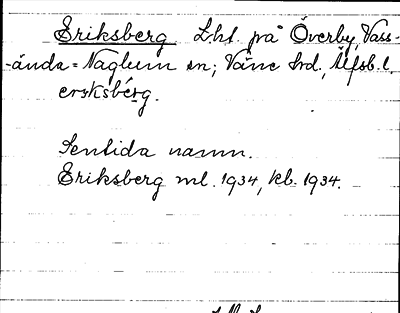 Eriksberg Lht. på Överby, Vass-
ända-Naglum sn; Väne hd., Älfsb. l.
ersksbérg.
Sentida namn.
Eriksberg ml. 1934, kb. 1934.